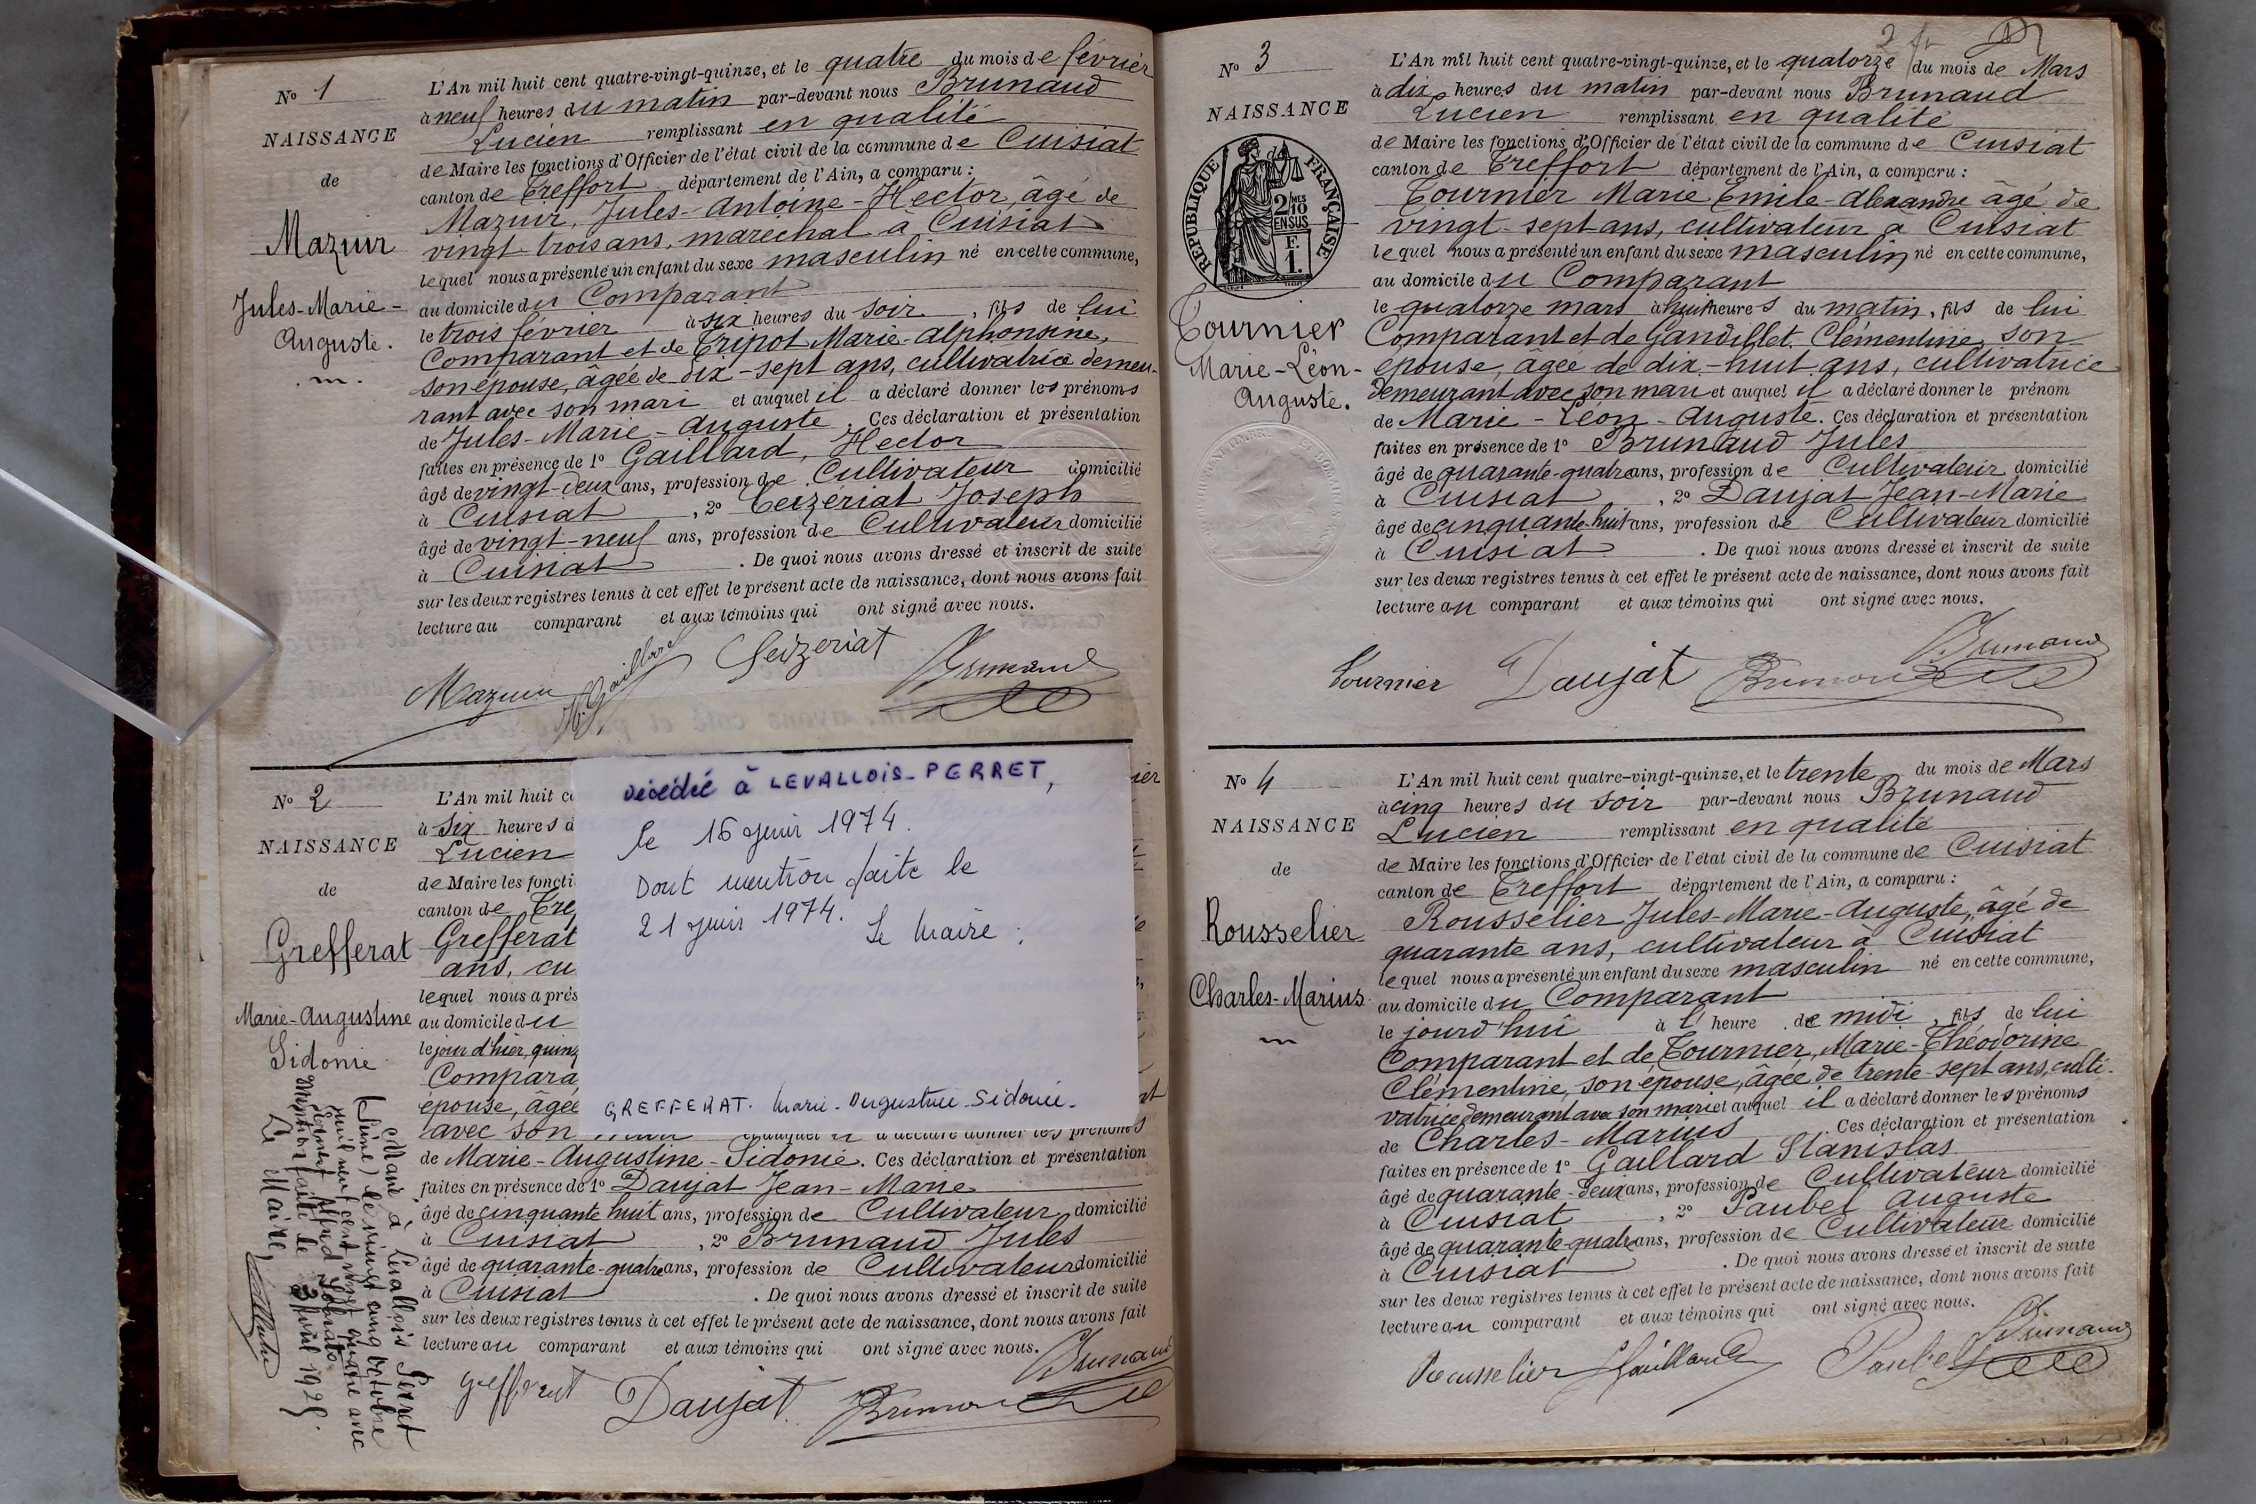 N° 1
NAISSANCE
de
Mazuir
Jules-Marie-
Auguste.
L'An mil huit cent quatre-vingt-quinze, et le quatre du mois de février
à neuf heures du matin par-devant nous Brunaud
Lucien remplissant en qualité
de Maire les fonctions d'Officier de l'état civil de la commune de Cuisiat
canton de Treffort département de l'Ain, a comparu :
Mazuir, Jules-Antoine-Hector, âgé de
vingt-trois ans, maréchal à Cuisiat
lequel nous a présenté un enfant du sexe masculin né en cette commune,
au domicile du Comparant
le trois février à six heures du soir, fils de lui
Comparant et de Tripot Marie-Alphonsine,
son épouse, âgée de dix-sept ans, cultivatrice demeu-
rant avec son mari et auquel il a déclaré donner les prénoms
de Jules-Marie-Auguste. Ces déclaration et présentation
faites en présence de 1° Gaillard, Hector
âgé de vingt-deux ans, profession de Cultivateur domicilié
à Cuisiat, 2° Ceizeriat Joseph
âgé de vingt-neuf ans, profession de Cultivateur domicilié
à Cuisiat. De quoi nous avons dressé et inscrit de suite
sur les deux registres tenus à cet effet le présent acte de naissance, dont nous avons fait
lecture au comparant et aux témoins qui ont signé avec nous.
Mazuir H. Gaillard Ceizeriat Brunaud
N° 2
NAISSANCE
de
Grefferat
Marie-Augustine
Sidonie
L'An mil huit c
à six heures d
Lucien
de Maire les foncti
canton de Tref
Grefferat
ans, cu
lequel nous a prés
au domicile du
le jour d'hier, quinz
Compara
épouse, âgée
avec son mari et auquel il a déclaré donner les prénoms
de Marie-Augustine-Sidonie. Ces déclaration et présentation
faites en présence de 1° Daujat Jean-Marie
âgé de cinquante huit ans, profession de Cultivateur domicilié
à Cuisiat, 2° Brunaud Jules
âgé de quarante-quatre ans, profession de Cultivateur domicilié
à Cuisiat. De quoi nous avons dressé et inscrit de suite
sur les deux registres tenus à cet effet le présent acte de naissance, dont nous avons fait
lecture au comparant et aux témoins qui ont signé avec nous.
Grefferat Daujat Brunaud Brunaud
Marié à Levallois Perret
(Seine) le vingt cinq octobre
mil neuf cent vingt quatre avec
Alfred
Mention faite le 3 Avril 1925.
Le Maire,
Décédé à LEVALLOIS-PERRET,
le 16 juin 1974.
Dont mention faite le
21 juin 1974. Le Maire :
GREFFERAT. Marie-Augustine-Sidonie-
N° 3
NAISSANCE
RÉPUBLIQUE FRANÇAISE
2/10 MES
EN SUS
1 F.
Tournier
Marie-Léon-
Auguste.
L'An mil huit cent quatre-vingt-quinze, et le quatorze du mois de Mars
à dix heures du matin par-devant nous Brunaud
Lucien remplissant en qualité
de Maire les fonctions d'Officier de l'état civil de la commune de Cuisiat
canton de Treffort département de l'Ain, a comparu :
Tournier Marie Emile-Alexandre âgé de
vingt-sept ans, cultivateur à Cuisiat
lequel nous a présenté un enfant du sexe masculin né en cette commune,
au domicile du Comparant
le quatorze mars à huit heures du matin, fils de lui
Comparant et de Gandillet Clémentine, son
épouse, âgée de dix-huit ans, cultivatrice
demeurant avec son mari et auquel il a déclaré donner le prénom
de Marie-Léon-Auguste. Ces déclaration et présentation
faites en présence de 1° Brunaud Jules
âgé de quarante-quatre ans, profession de Cultivateur domicilié
à Cuisiat, 2° Daujat Jean-Marie
âgé de cinquante-huit ans, profession de Cultivateur domicilié
à Cuisiat. De quoi nous avons dressé et inscrit de suite
sur les deux registres tenus à cet effet le présent acte de naissance, dont nous avons fait
lecture au comparant et aux témoins qui ont signé avec nous.
Tournier Daujat Brunaud Brunaud
N° 4
NAISSANCE
de
Rousselier
Charles-Marius
L'An mil huit cent quatre-vingt-quinze, et le trente du mois de Mars
à cinq heures du soir par-devant nous Brunaud
Lucien remplissant en qualité
de Maire les fonctions d'Officier de l'état civil de la commune de Cuisiat
canton de Treffort département de l'Ain, a comparu :
Rousselier Jules-Marie-Auguste, âgé de
quarante ans, cultivateur à Cuisiat
lequel nous a présenté un enfant du sexe masculin né en cette commune,
au domicile du Comparant
le jourd'hui à l'heure de midi, fils de lui
Comparant et de Tournier, Marie-Théodorine
Clémentine, son épouse, âgée de trente-sept ans, culti-
vatrice demeurant avec son mari et auquel il a déclaré donner les prénoms
de Charles-Marius. Ces déclaration et présentation
faites en présence de 1° Gaillard Stanislas
âgé de quarante-deux ans, profession de Cultivateur domicilié
à Cuisiat, 2° Paubel Auguste
âgé de quarante-quatre ans, profession de Cultivateur domicilié
à Cuisiat. De quoi nous avons dressé et inscrit de suite
sur les deux registres tenus à cet effet le présent acte de naissance, dont nous avons fait
lecture au comparant et aux témoins qui ont signé avec nous.
Rousselier Gaillard Paubel Brunaud